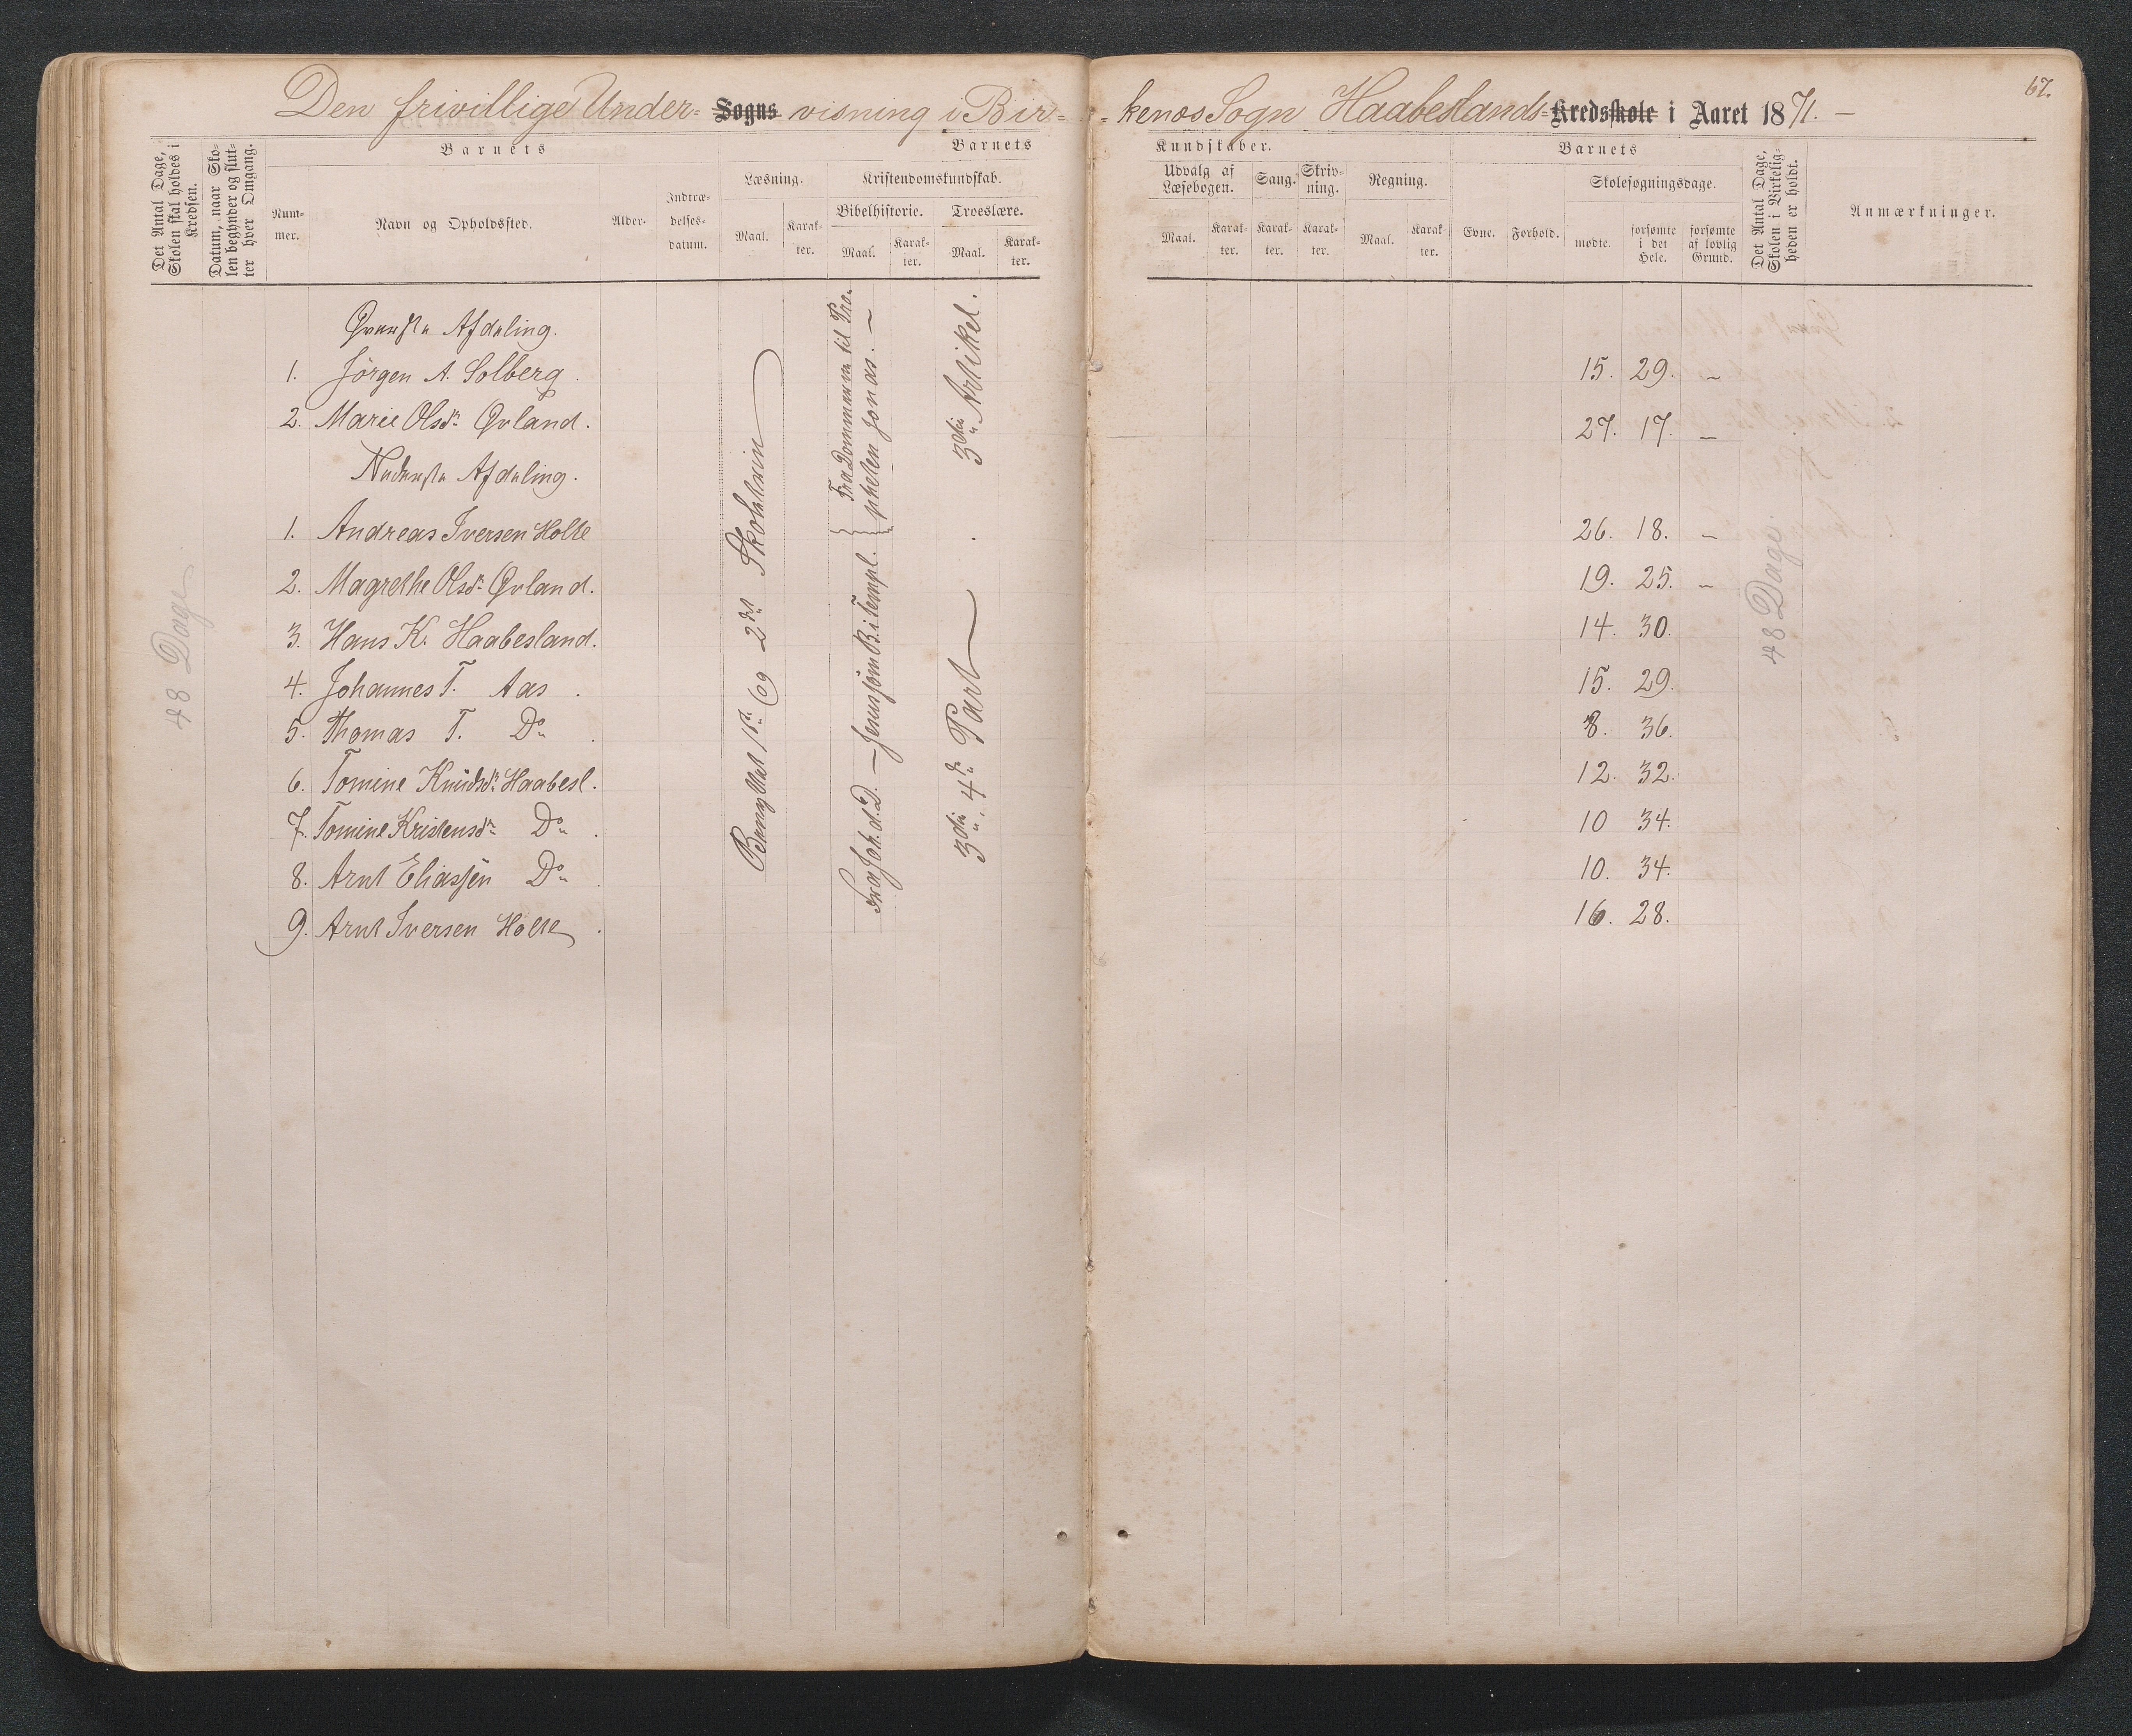 Den frivillige Under- Sogns visning i Bir-
-kenæs Sogn Haabeslands- Kredsskole i Aaret 1871. —
67.
Det Antal Dage, Skolen skal holdes i Kredsen.
Datum, naar Skolen begynder og slutter hver Omgang.
Barnets
Nummer.
Navn og Opholdssted.
Alder.
Indtrædelsesdatum.
Barnets
Læsning.
Kristendomskundskab.
Maal.
Karakter.
Bibelhistorie.
Troeslære.
Maal.
Karakter.
Maal.
Karakter.
Kundskaber.
Udvalg af Læsebogen.
Sang.
Skrivning.
Regning.
Maal.
Karakter.
Karakter.
Karakter.
Maal.
Karakter.
Barnets
Evne.
Forhold.
Skolesøgningsdage.
mødte.
forsømte i det Hele.
forsømte af lovlig Grund.
Det Antal Dage, Skolen i Virkeligheden er holdt.
Anmærkninger.
48 Dage
Øverste Afdeling.
1. Jörgen A. Solberg. 15. 29. –
2. Marie Olsdr Øvland. 27. 17. –
Nederste Afdeling.
1. Andreas Iversen Holte 26. 18. –
2. Magrethe Olsdr Øvland. 19. 25. –
3. Hans K. Haabesland. 14. 30.
4. Johannes T. Aas. 15. 29.
5. Thomas T. Do. 8. 36.
6. Tomine Knudsdr Haabesl. 12. 32.
7. Tomine Kristensdr Do. 10 34.
8. Arnt Eliassen Do. 10. 34.
9. Arnt Iversen Holte. 16. 28.
og 2det Skoletrin
Fra Dommerne til Propheten Jonas. —
Fra Joh. d. D. — Jesus som B. i Templ.
3die Artikel.
3die, 4de Part
48 Dage